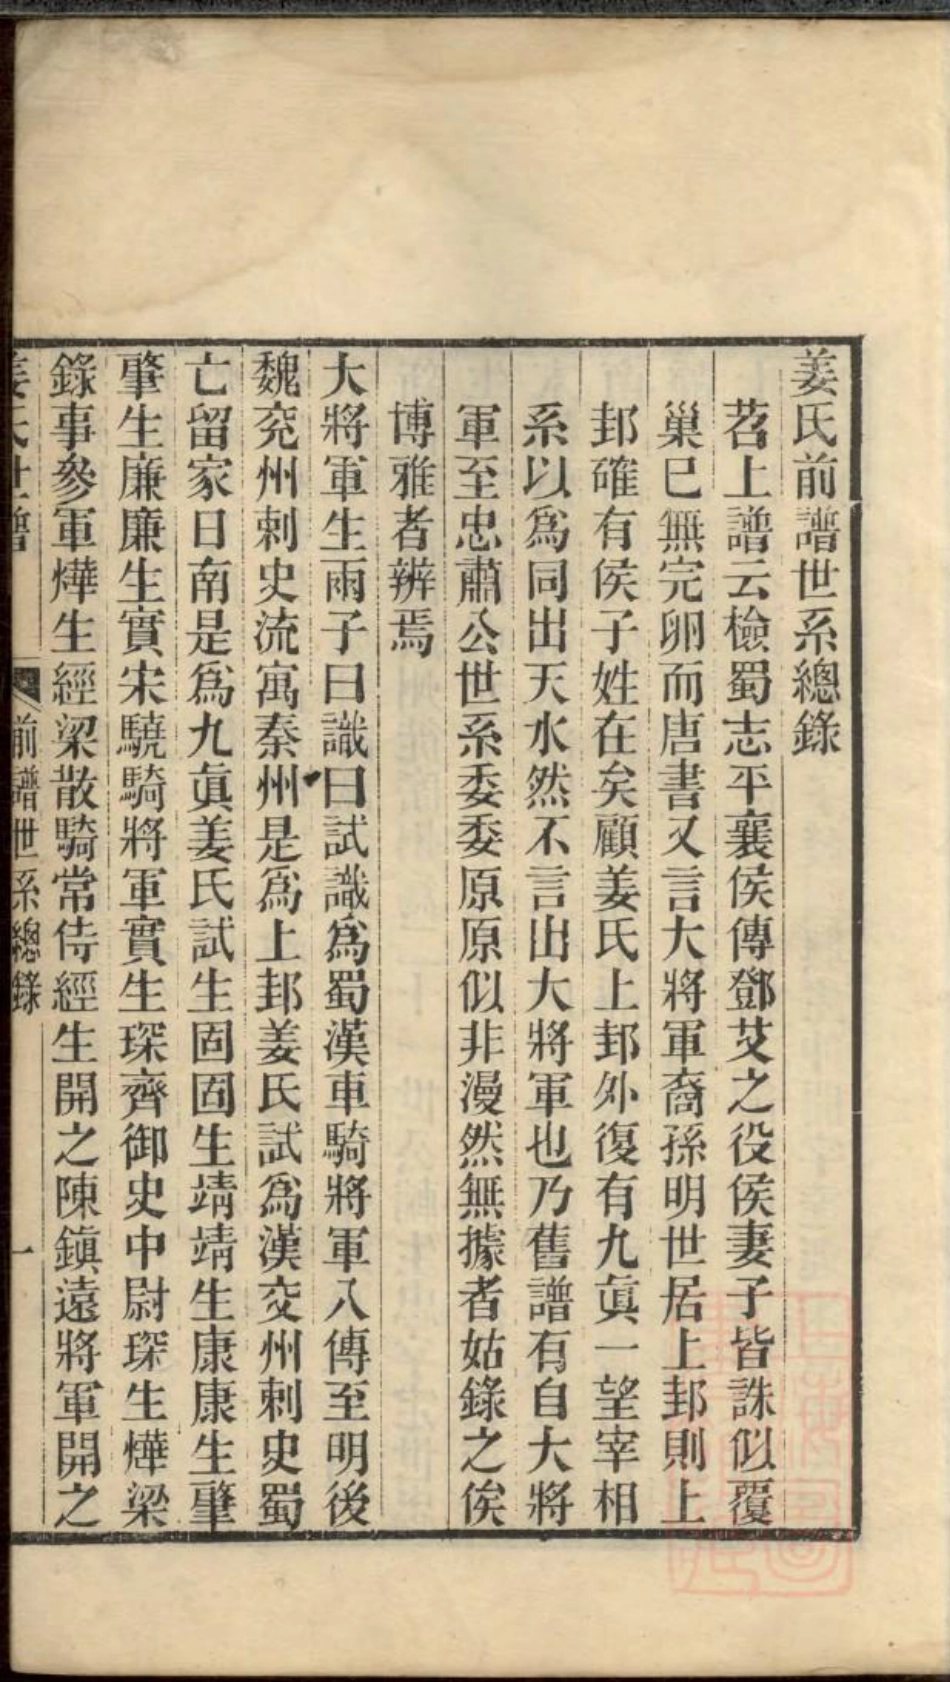 姜氏前譜世系總錄
苕上譜云檢蜀志平襄侯傳鄧艾之役侯妻子皆誅似覆
巢巳無完卵而唐書又言大將軍裔孫明世居上邽則上
邽確有侯子姓在矣顧姜氏上邽外復有九眞一望宰相
系以爲同出天水然不言出大將軍也乃舊譜有自大將
軍至忠肅公世系委委原原似非漫然無據者姑錄之俟
博雅者辨焉
大將軍生兩子曰識曰試識爲蜀漢車騎將軍八傳至明後
魏兖州刺史流寓秦州是爲上邽姜氏試爲漢交州刺史蜀
亡留家日南是爲九眞姜氏試生固固生靖靖生康康生肇
肇生廉廉生實宋驍騎將軍實生琛齊御史中尉琛生燁梁
錄事參軍燁生經梁散騎常侍經生開之陳鎭遠將軍開之
姜氏世譜 前譜世系總錄 一